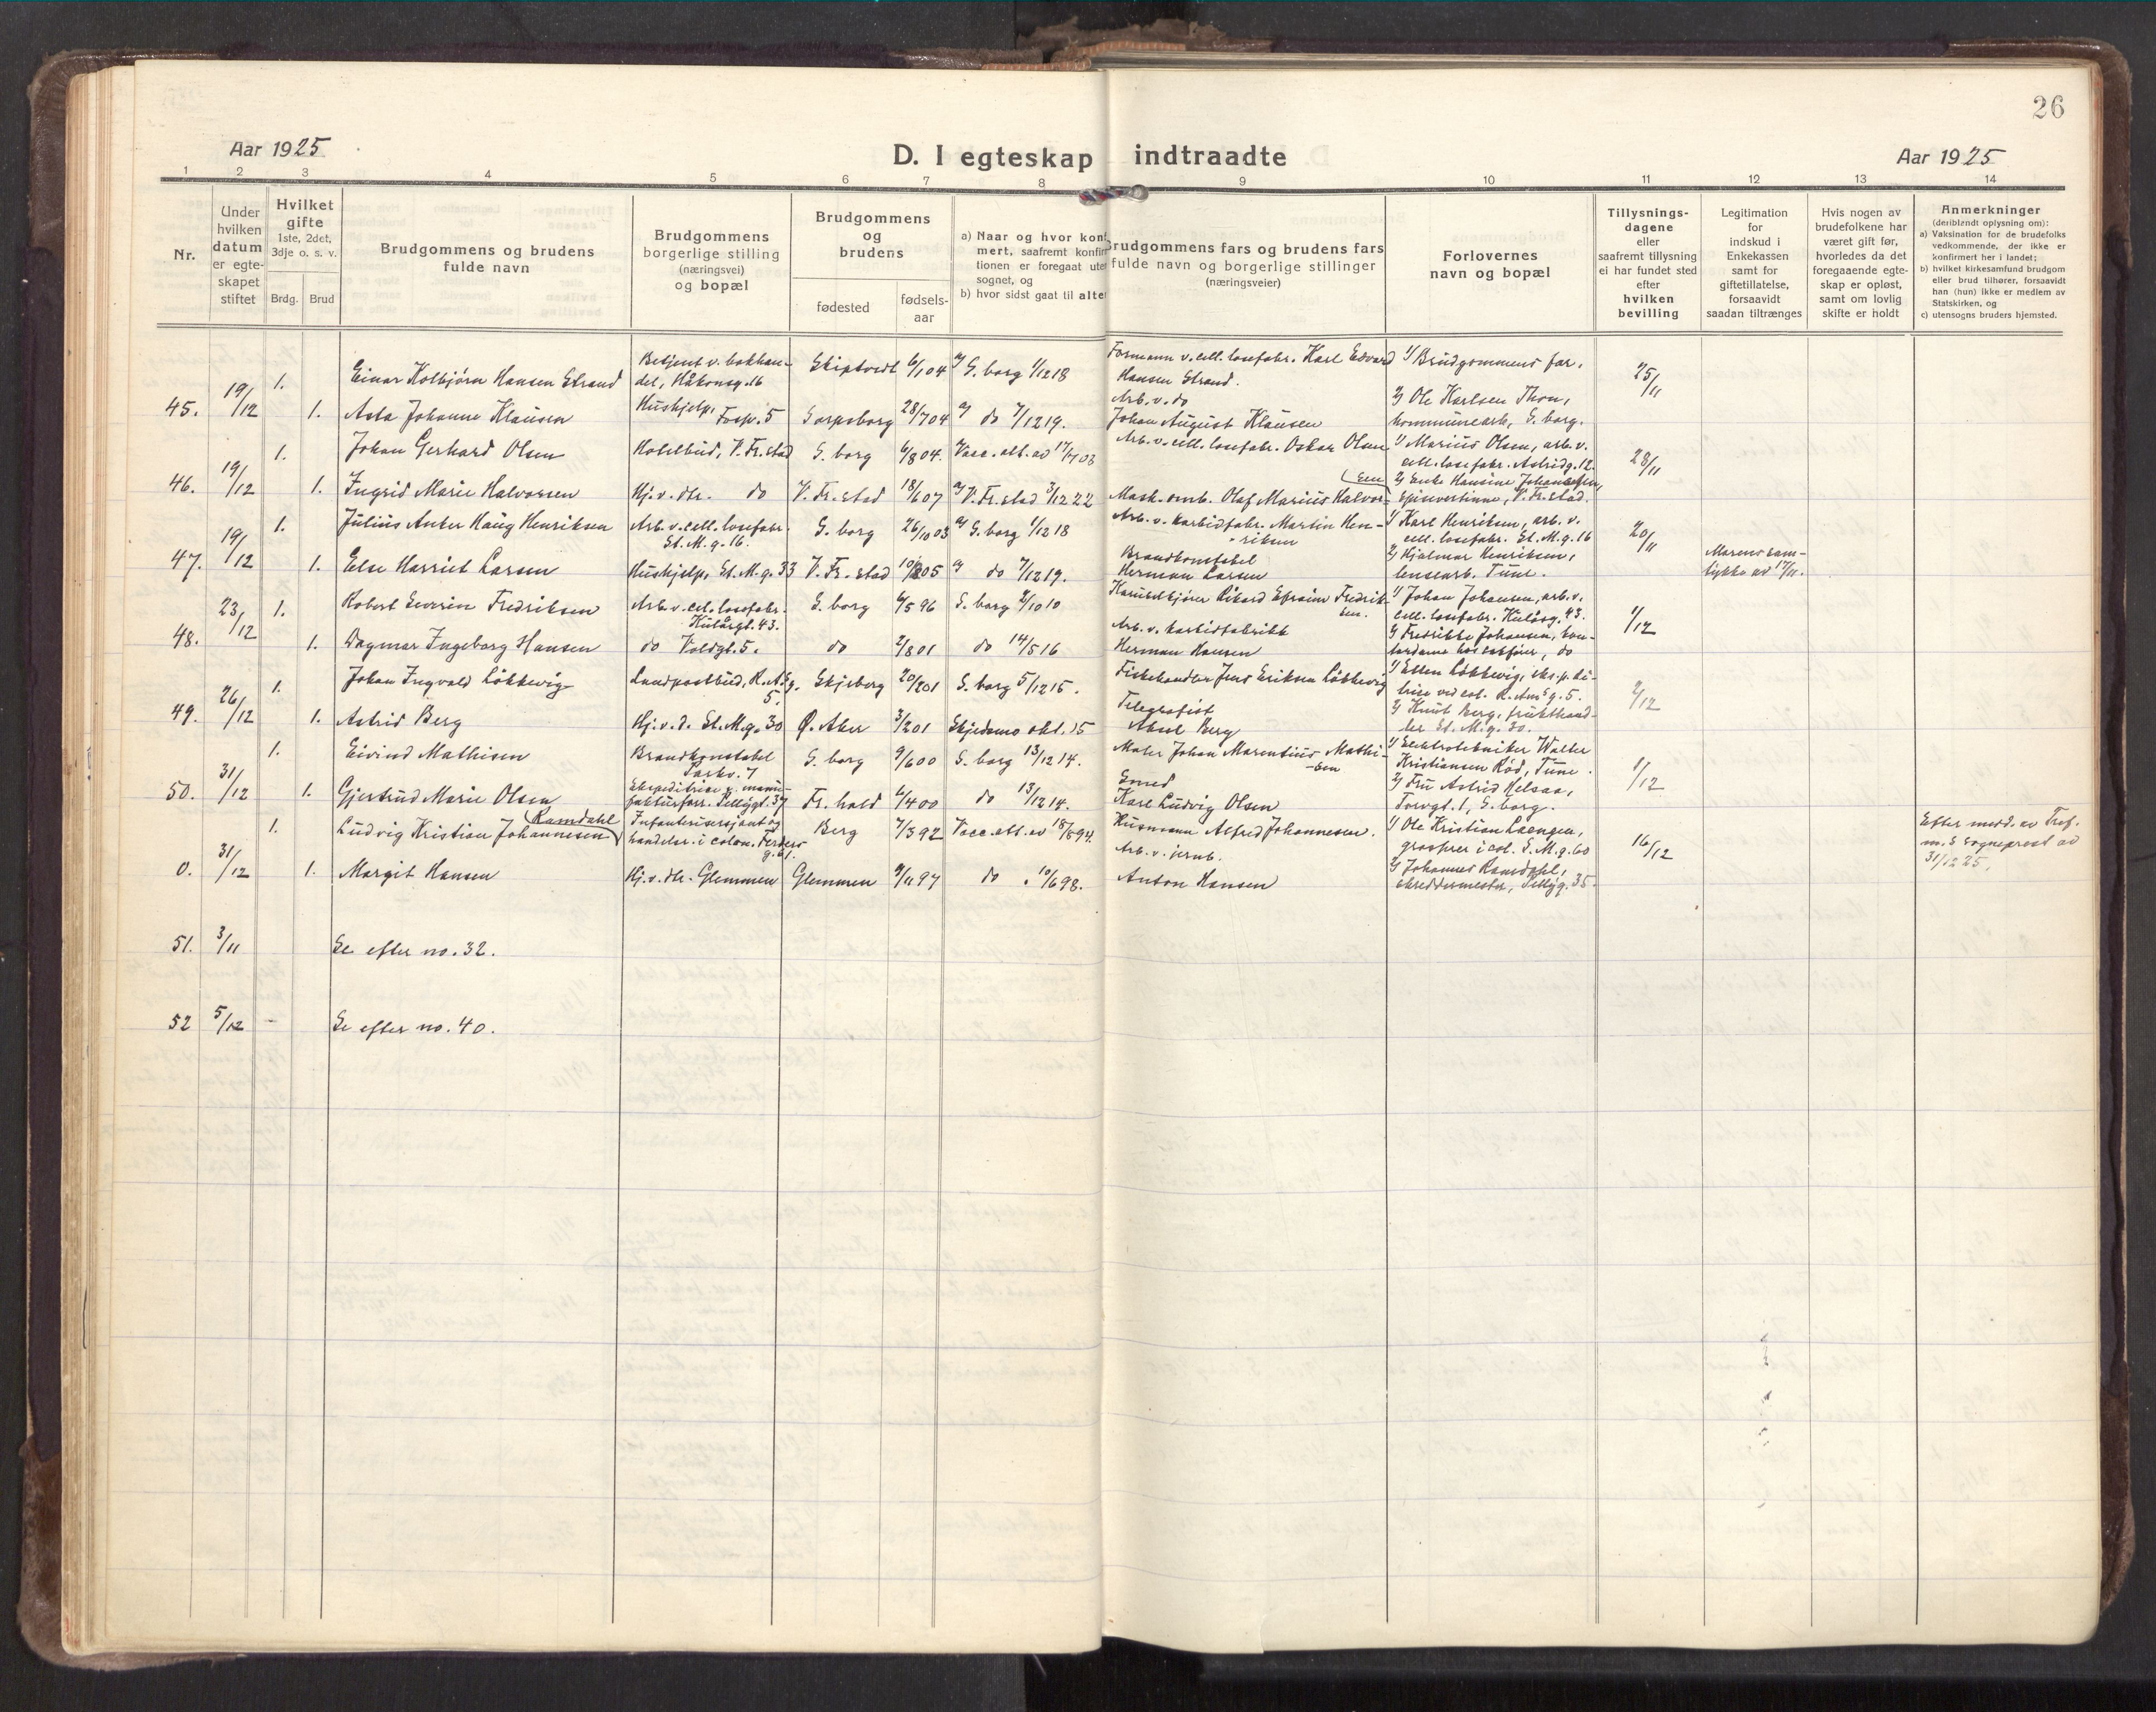 26
Aar 1925
D. I egteskap indtraadte
Aar 1925
1 2 3 4 5 6 7 8 9 10 11 12 13 14
Nr.
Under
hvilken
datum
er egte-
skapet
stiftet
Hvilket
gifte
1ste, 2det,
3dje o. s. v.
Brdg. Brud
Brudgommens og brudens
fulde navn
Brudgommens
borgerlige stilling
(næringsvei)
og bopæl
Brudgommens
og
brudens
fødested
fødsels-
aar
a) Naar og hvor konf
mert, saafremt konfir
tionen er foregaat utet
sognet, og
b) hvor sidst gaat til alter
Brudgommens fars og brudens fars
fulde navn og borgerlige stillinger
(næringsveier)
Forlovernes
navn og bopæl
Tillysnings-
dagene
eller
saafremt tillysning
ei har fundet sted
efter
hvilken
bevilling
Legitimation
for
indskud i
Enkekassen
samt for
giftetillatelse,
forsaavidt
saadan tiltrænges
Hvis nogen av
brudefolkene har
været gift før,
hvorledes da det
foregaaende egte-
skap er opløst,
samt om lovlig
skifte er holdt
Anmerkninger
(deriblandt oplysning om):
a) Vaksination for de brudefolks
vedkommende, der ikke er
konfirmert her i landet;
b) hvilket kirkesamfund brudgom
eller brud tilhører, forsaavidt
han (hun) ikke er medlem av
Statskirken, og
c) utensogns bruders hjemsted.
45. 19/12
1. Einar Kolbjørn Hansen Strand
Betjent v. bokhan-
del, Håkonsg. 16
Skiptvedt 6/1 04 a) S. borg 1/12 18
Formann v. cell. losefabr. Karl Edvard
Hansen Strand.
1) Brudgommens far,
25/11
1. Asta Johanne Klausen
Hushjelp, Fosp. 5
Sarpsborg 28/7 04 a) do 7/12 19.
Arb. v. do
Johan August Klausen
2) Ole Karlsen Thon,
kommunearb, S. borg.
46. 19/12
1. Johan Gerhard Olsen
Hotelbud, V. Fr. stad
S. borg 6/8 04. Vacc. att. av 17/7 03
Arb. v. cell. losefabr. Oskar Olsen
1) Marius Olsen, arb. v.
cell. losefabr. Astridg. 12.
28/11
1. Ingrid Marie Halvorsen
Hj. v. dtr. do
V. Fr. stad 18/6 07 a) V. Fr. stad 3/12 22
Mask. omb. Olaf Marius Halvor-
sen
2) Enke Hansine Johannessen,
spisevertinne, V. Fr. stad.
47. 19/12
1. Julius Anker Haug Henriksen
Arb. v. cell. losefabr.
St. M. g. 16.
S. borg 26/10 03 a) S. borg 1/12 18
Arb. v. karbidfabr. Martin Hen-
riksen
1) Karl Henriksen, arb. v.
cell. losefabr. St. M. g. 16
20/11
1. Else Harriet Larsen
Hushjelp, St. M. g. 33
V. Fr. stad 10/8 05 a) do 7/12 19.
Brandkonstabel
Herman Larsen
2) Hjalmar Henriksen,
lensearb. Tune.
Morens sam-
tykke av 17/11.
48. 23/12
1. Robert Severin Fredriksen
Arb. v. cel. losefabr.
Kulåsgt. 43.
S. borg 6/5 96 S. borg 2/10 10
Karuselkjører Rikard Efraim Fredrik-
sen.
1) Johan Johansen, arb. v.
cell. losefabr. Kulåsg. 43.
1/12
1. Dagmar Ingeborg Hansen
do Voldgt. 5.
do 2/8 01 do 14/5 16
Arb. v. karbidfabrikk
Herman Hansen
2) Fredrikke Johansen, kon-
tordame hos sakfører, do
49. 26/12
1. Johan Ingvald Løkkevig
Landpostbud, R. A. g.
5.
Skjeberg 20/2 01 S. borg 5/12 15.
Fiskehandler Jens Eriksen Løkkevig
1) Esten Løkkevig,
R. Am. g. 5.
2/12
1. Astrid Berg
Hj. v. d. St. M. g. 30
Ø. Aker 3/2 01 Skjedsmo okt. 15
Telegrafist
Aksel Berg
2) Knut Berg, frukthand-
ler St. M. g. 30.
50. 31/12
1. Eivind Mathisen
Brandkonstabel
Parkv. 7
S. borg 9/6 00 S. borg 13/12 14.
Maler Johan Marentius Mathi-
sen
1) Elektrotekniker Walter
Kristiansen Rød, Tune.
1/12
1. Gjertrud Marie Olsen
Ekspeditrise v. manu-
fakturforr. Pellygt. 37
Fr. hald 6/4 00 do 13/12 14.
Smed
Karl Ludvig Olsen
2) Fru Astrid Helsaa,
Torvgt. 1, S. borg.
0. 31/12
1. Ludvig Kristian Johannesen
Ramdahl
Infanterisersjant og
handelsr. i colon. Ferders
g. 61.
Berg 7/3 92 Vacc. att. av 18/8 94.
Husmann Alfred Johannesen.
1) Ole Kristian Laengen,
grosserer i col. S. M. g. 60
16/12
Efter medd. av Tref.
m. s sogneprest av
31/12 25,
1. Margit Hansen
Hj. v. dtr. Glemmen
Glemmen 9/11 97 do 10/6 98.
Arb. v. jernb.
Anton Hansen
2) Johannes Ramdahl,
skreddermester, Pellyg. 35
51. 3/11 Se efter no. 32.
52 5/12 - Se efter no. 40.